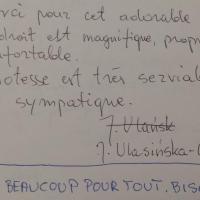 rci pour cet adorable
droit est magnifique, propr
nfortable.
otesse est très serviab
sympatique.
J. Ulasińska-
BEAUCOUP POUR TOUT. BIS